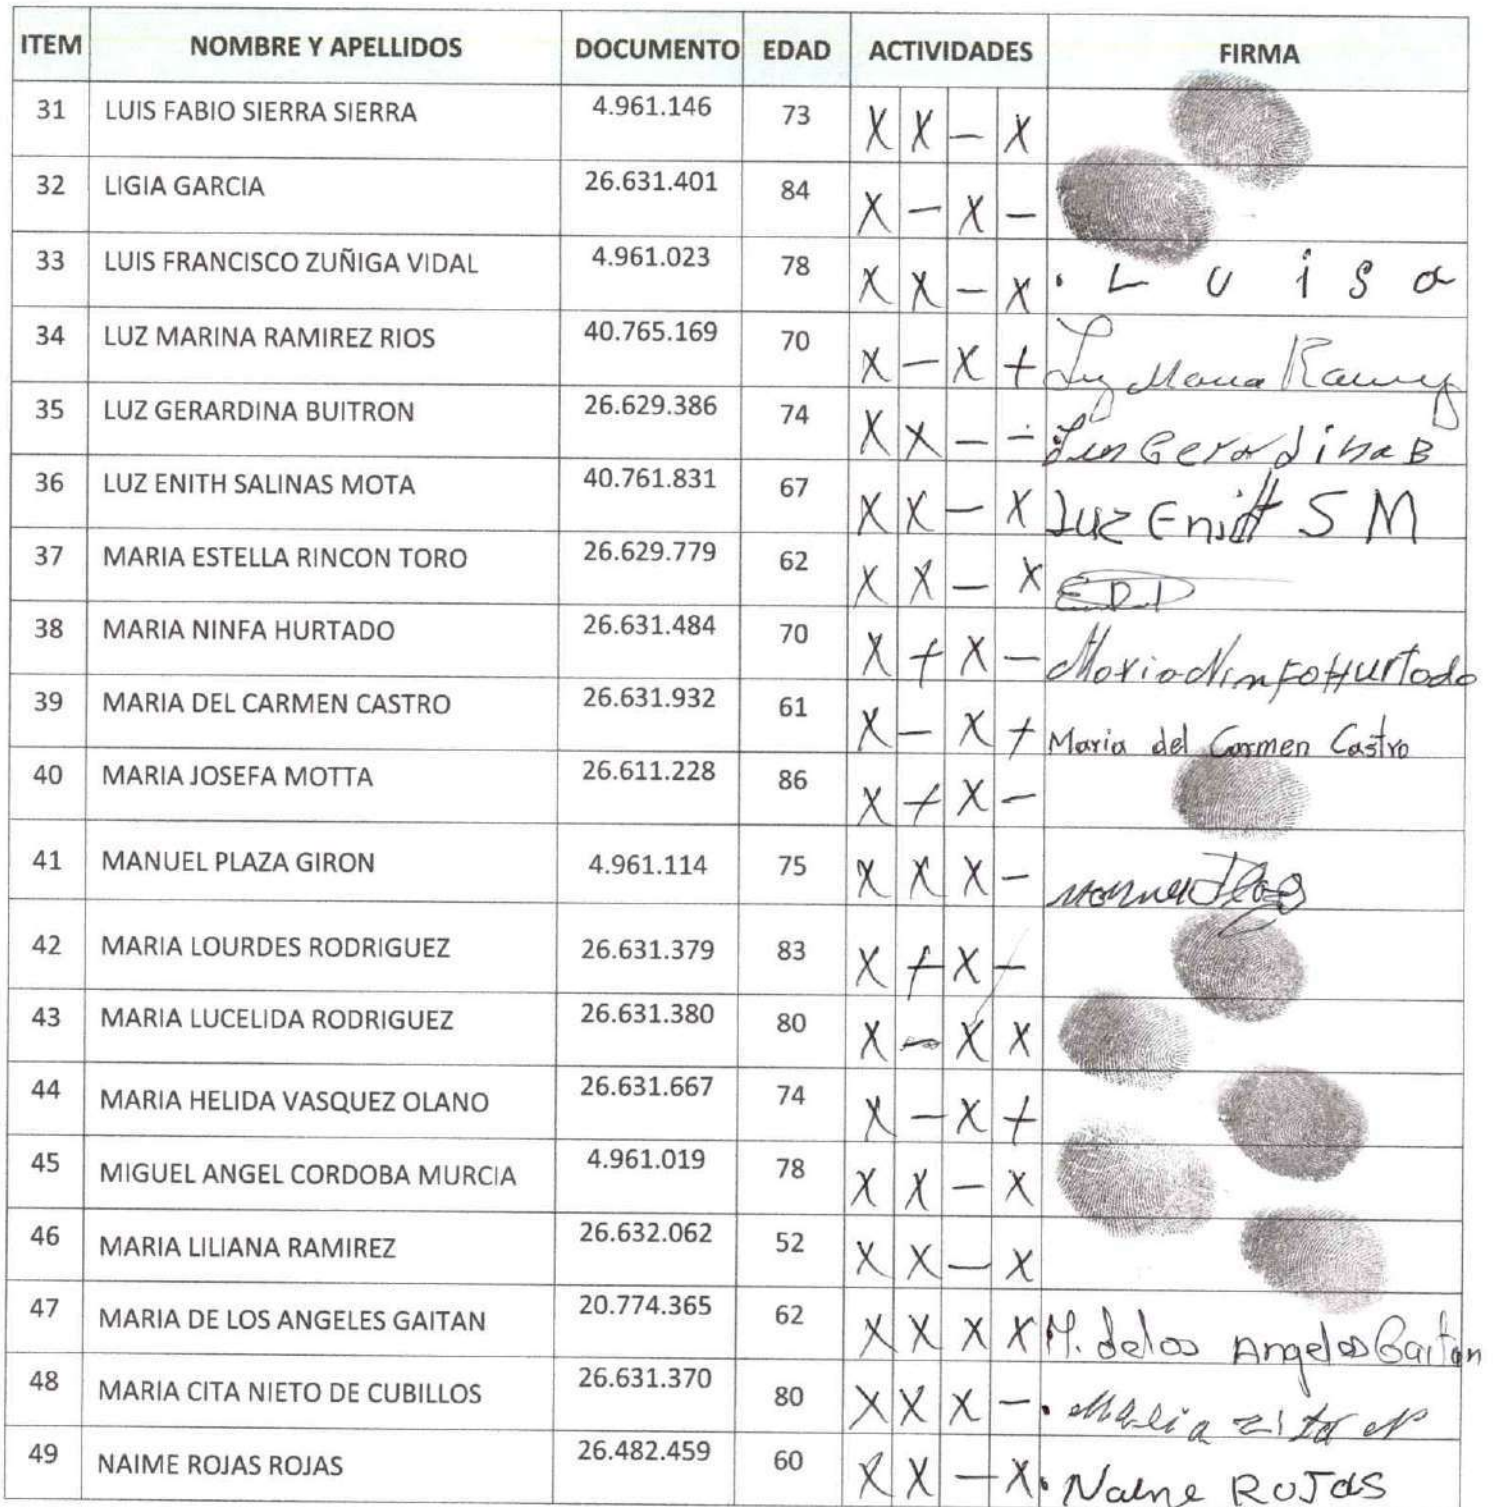 ITEM NOMBRE Y APELLIDOS DOCUMENTO EDAD ACTIVIDADES FIRMA
31 LUIS FABIO SIERRA SIERRA 4.961.146 73 X X — X
32 LIGIA GARCIA 26.631.401 84 X — X —
33 LUIS FRANCISCO ZUÑIGA VIDAL 4.961.023 78 X X — X . L u i s a
34 LUZ MARINA RAMIREZ RIOS 40.765.169 70 X — X +
35 LUZ GERARDINA BUITRON 26.629.386 74 X X — — Luz Gerardina B
36 LUZ ENITH SALINAS MOTA 40.761.831 67 X X — X Luz Enith S M
37 MARIA ESTELLA RINCON TORO 26.629.779 62 X X — X
38 MARIA NINFA HURTADO 26.631.484 70 X + X — Maria Ninfa Hurtado
39 MARIA DEL CARMEN CASTRO 26.631.932 61 X — X + Maria del Carmen Castro
40 MARIA JOSEFA MOTTA 26.611.228 86 X + X —
41 MANUEL PLAZA GIRON 4.961.114 75 X X X — Manuel
42 MARIA LOURDES RODRIGUEZ 26.631.379 83 X + X —
43 MARIA LUCELIDA RODRIGUEZ 26.631.380 80 X — X X
44 MARIA HELIDA VASQUEZ OLANO 26.631.667 74 X — X +
45 MIGUEL ANGEL CORDOBA MURCIA 4.961.019 78 X X — X
46 MARIA LILIANA RAMIREZ 26.632.062 52 X X — X
47 MARIA DE LOS ANGELES GAITAN 20.774.365 62 X X X X M. de los Angeles Gaitan
48 MARIA CITA NIETO DE CUBILLOS 26.631.370 80 X X X — . Maria zita N
49 NAIME ROJAS ROJAS 26.482.459 60 X X — X . Naime ROJas